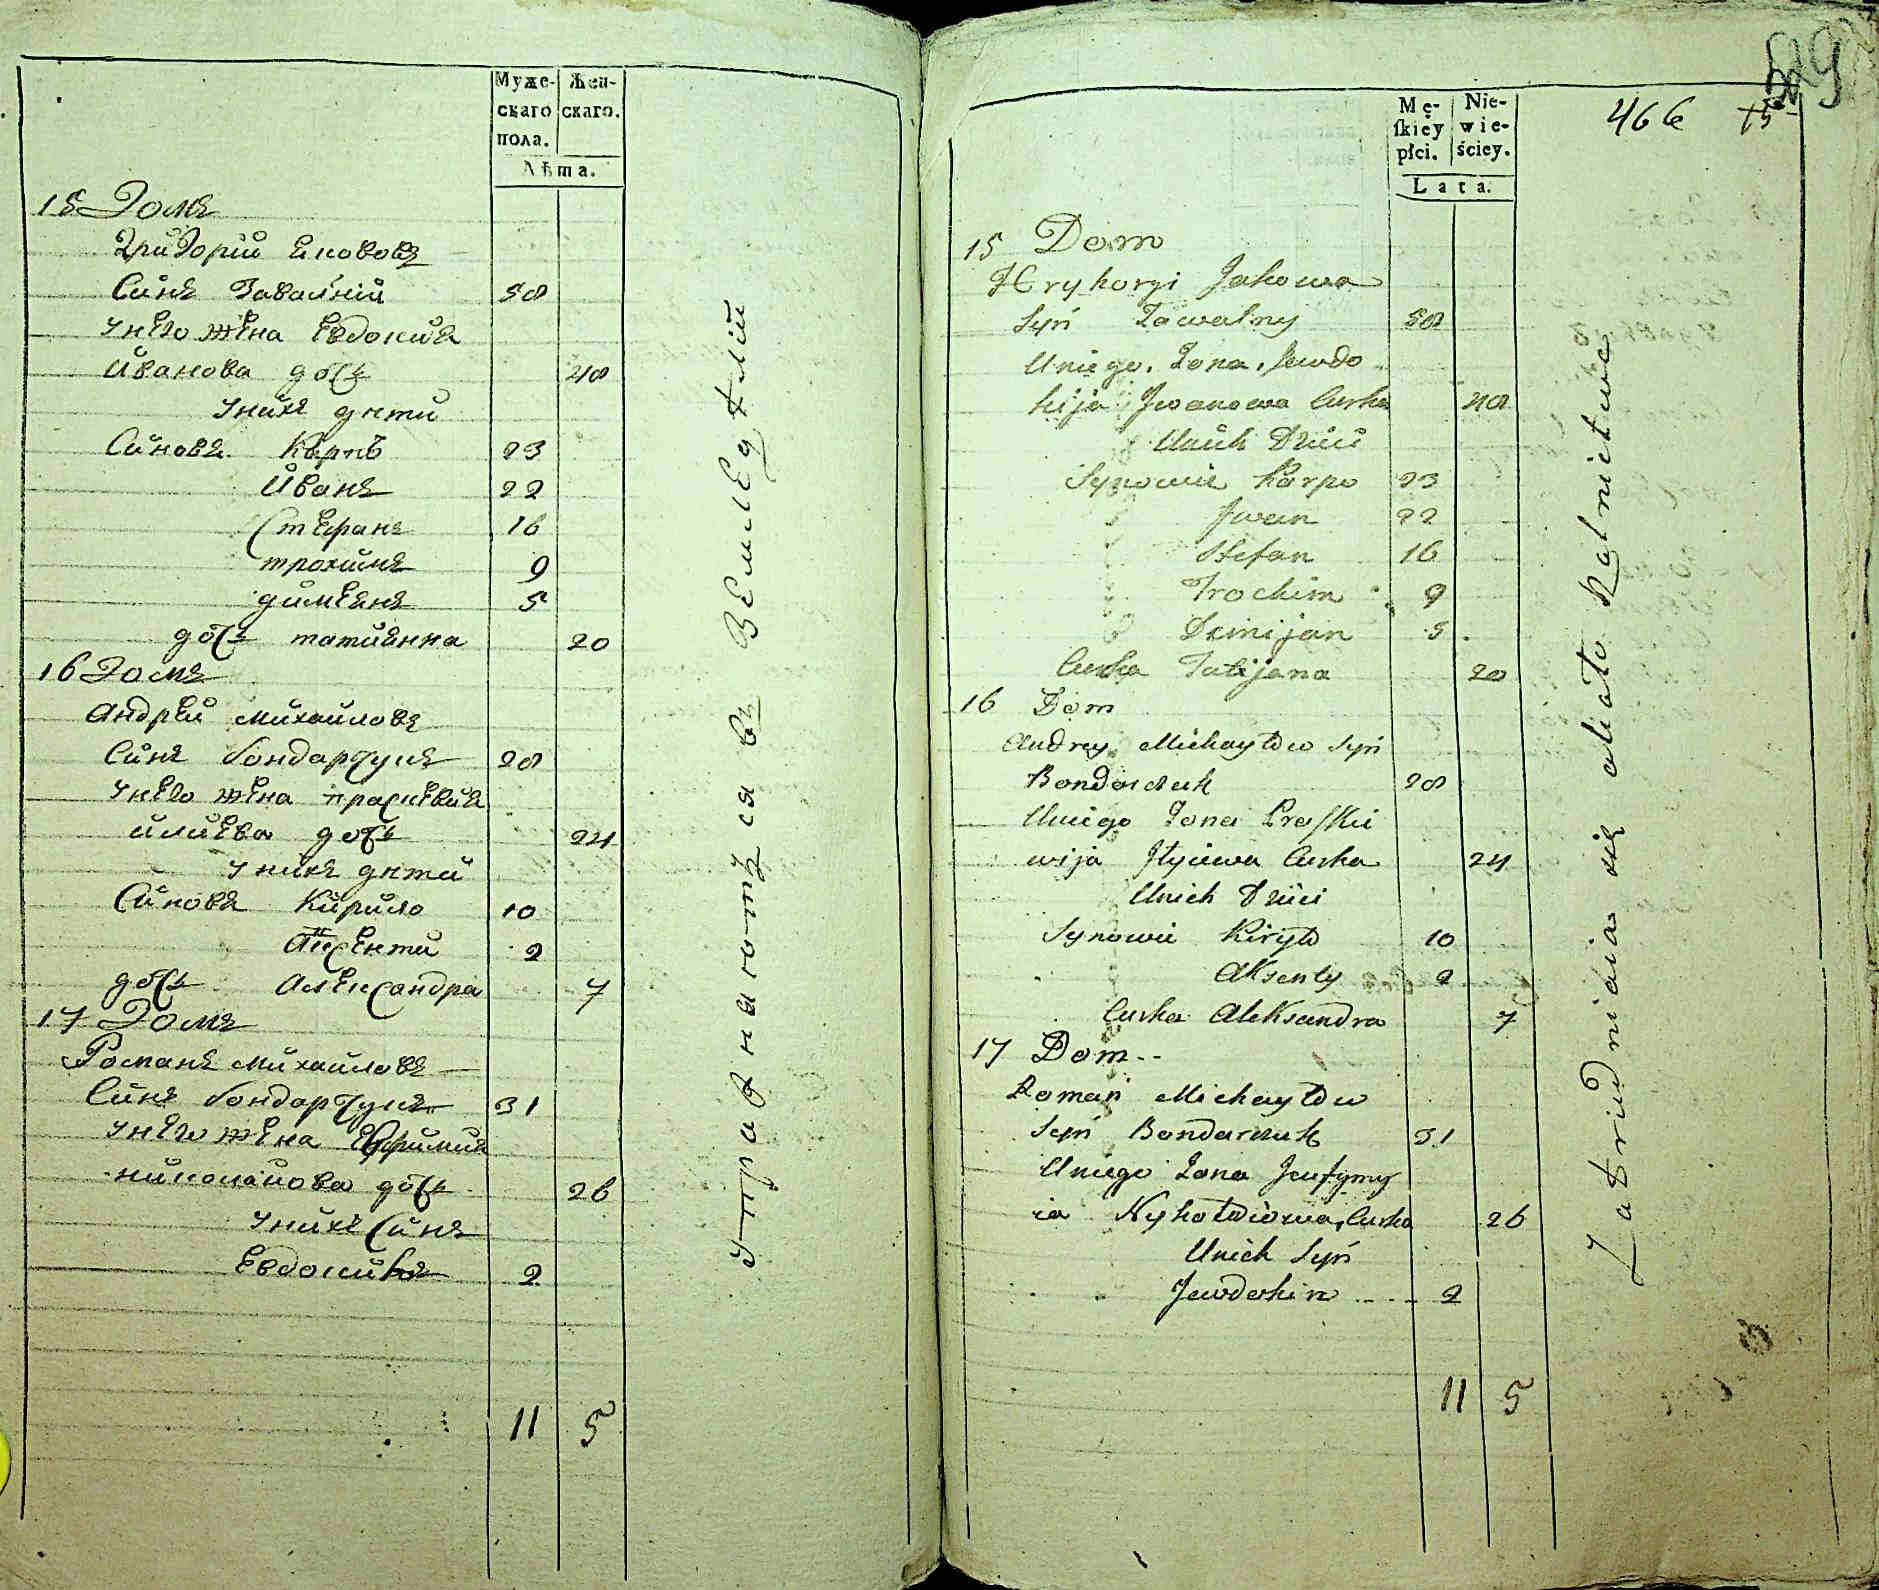 Муже-
скаго
пола.
Жен-
скаго.
Лѣта.
15 Домъ
Григорій Якововъ
Синъ Завалній 50
У него жена Евдокия
Иванова дочь 40
У нихъ дѣти
Синовя Карпъ 23
Иванъ 22
Стефанъ 16
трохимъ 9
димянъ 5
дочь татиянна 20
16 Домъ
Андрей михайловъ
Синъ бондарчукъ 28
У него жена прасковия
илиева дочь 24
У нихъ дѣти
Синовя Кирило 10
Аксенти 2
дочь Александра 7
17 Домъ
Романъ михайловъ
Синъ бондарчукъ 31
У него жена Евфимия
николайова дочь 26
У нихъ Синъ
Евдокимъ 2
11 5
упражняютъ ся въ Земледѣлии
466 15
Mę-
skiéy
płci.
Nie-
wie-
ściey.
Lata.
15 Dom
Hryhoryi Jakowa
Syń Zawalny 50
Uniego Zona Jewdo
kija Jwanowa Curka 40
Unich Dzieci
Synowie Karpo 23
Jwan 22
Stefan 16
Trochim 9
Demijan 5
Curka Tatijana 20
16 Dom
Andrey Michayłow Syń
Bondarczuk 28
Uniego Zona Praski
wija Jłyiewa Curka 24
Unich Dzieci
Synowie Kiryło 10
Aksenty 2
Curka Aleksandra 7
17 Dom
Roman Michayłow
Syń Bondarczuk 31
Uniego Zona Jewfymy
ia Nykołaiowa Curka 26
Unich Syń
Jewdokim 2
11 5
Zatrudniaia się około Rolnictwa